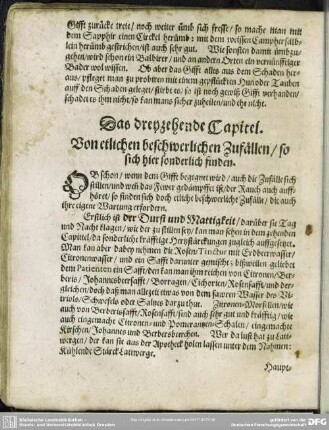 Gifft zurücke treit/ noch weiter ümb sich fresse/ so mache man mit
dem Sapphir einen Circkel herümb; mit dem weissen Campher salb-
lein herümb gestrichen/ ist auch sehr gut. Wie sonsten damit ümbzu-
gehen/ wird schon ein Balbirer/ und an andern Orten ein vernünfftiger
Bader wol wissen. Ob aber das Gifft alles aus dem Schaden her-
aus/ pfleget man zu probiren mit einem gepflückten Hun oder Tauben
auff den Schaden geleget/ stirbt es/ so ist noch gewiß Gifft vorhanden/
schadet es ihm nicht/ so kan mans sicher zuheilen/ und eher nicht.
Das dreyzehende Capitel.
Von etlichen beschwerlichen Zufällen/ so
sich hier sonderlich finden.
OB schon/ wenn dem Gifft begegnet wird/ auch die Zufälle sich
stillen/ und weñ das Fewer gedämpffet ist/ der Rauch auch auff-
höret/ so finden sich doch etliche beschwerliche Zufälle/ die auch
ihre eigene Wartung erfordern.
Erstlich ist der Durst und Mattigkeit/ darüber sie Tag
und Nacht klagen/ wie der zu stillen sey/ kan man sehen in dem zehenden
Capitel/ da sonderliche kräfftige Hertzstärckungen zugleich auffgesetzet.
Man kan aber dabey nehmen die Rosen Tinctur mit Erdbeerwasser/
Citronenwasser/ und ein Safft darunter gemischt; bißweilen geliebet
dem Patienten ein Safft/ den kan man ihm reichen von Citronen/ Ber-
beris/ Johannsbeersafft/ Borragen/ Cichorien/ Rosensafft/ und der-
gleichen/ doch daß man allezeit etwas von dem sauren Wasser des Vi-
triols/ Schwefels oder Saltzes darzu thut. Zitronen-Morsellen/ wie
auch von Berberissafft/ Rosensafft/ sind auch sehr gut und kräfftig/ wie
auch eingemacht Citronen- und Pomerantzen-Schalen/ eingemachte
Kirschen/ Johannes und Berbersbeerchen. Wer da lust hat zu Latt-
wergen/ der kan sie aus der Apotheck holen lassen unter dem Nahmen:
Kühlende Stärck Lattwerge.
Haupt-